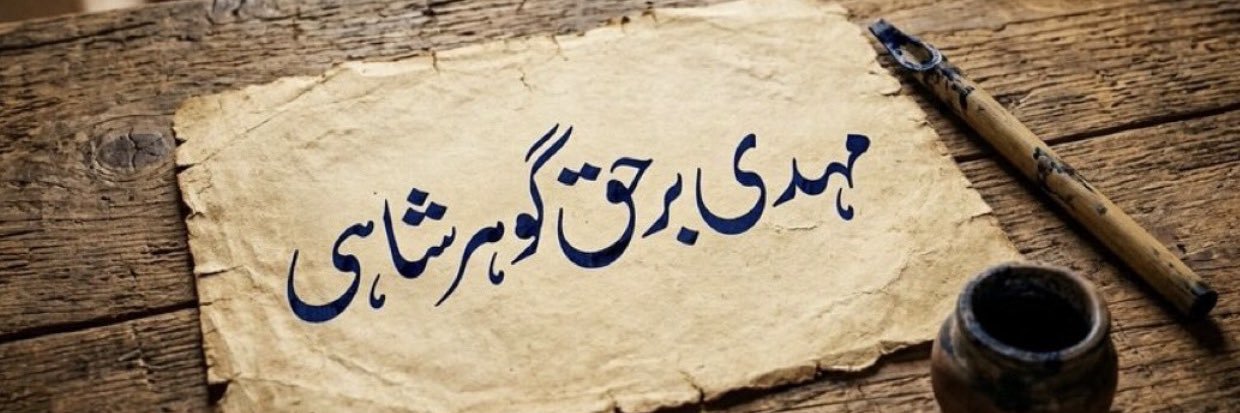 مہدی برحق گوہر شاہی